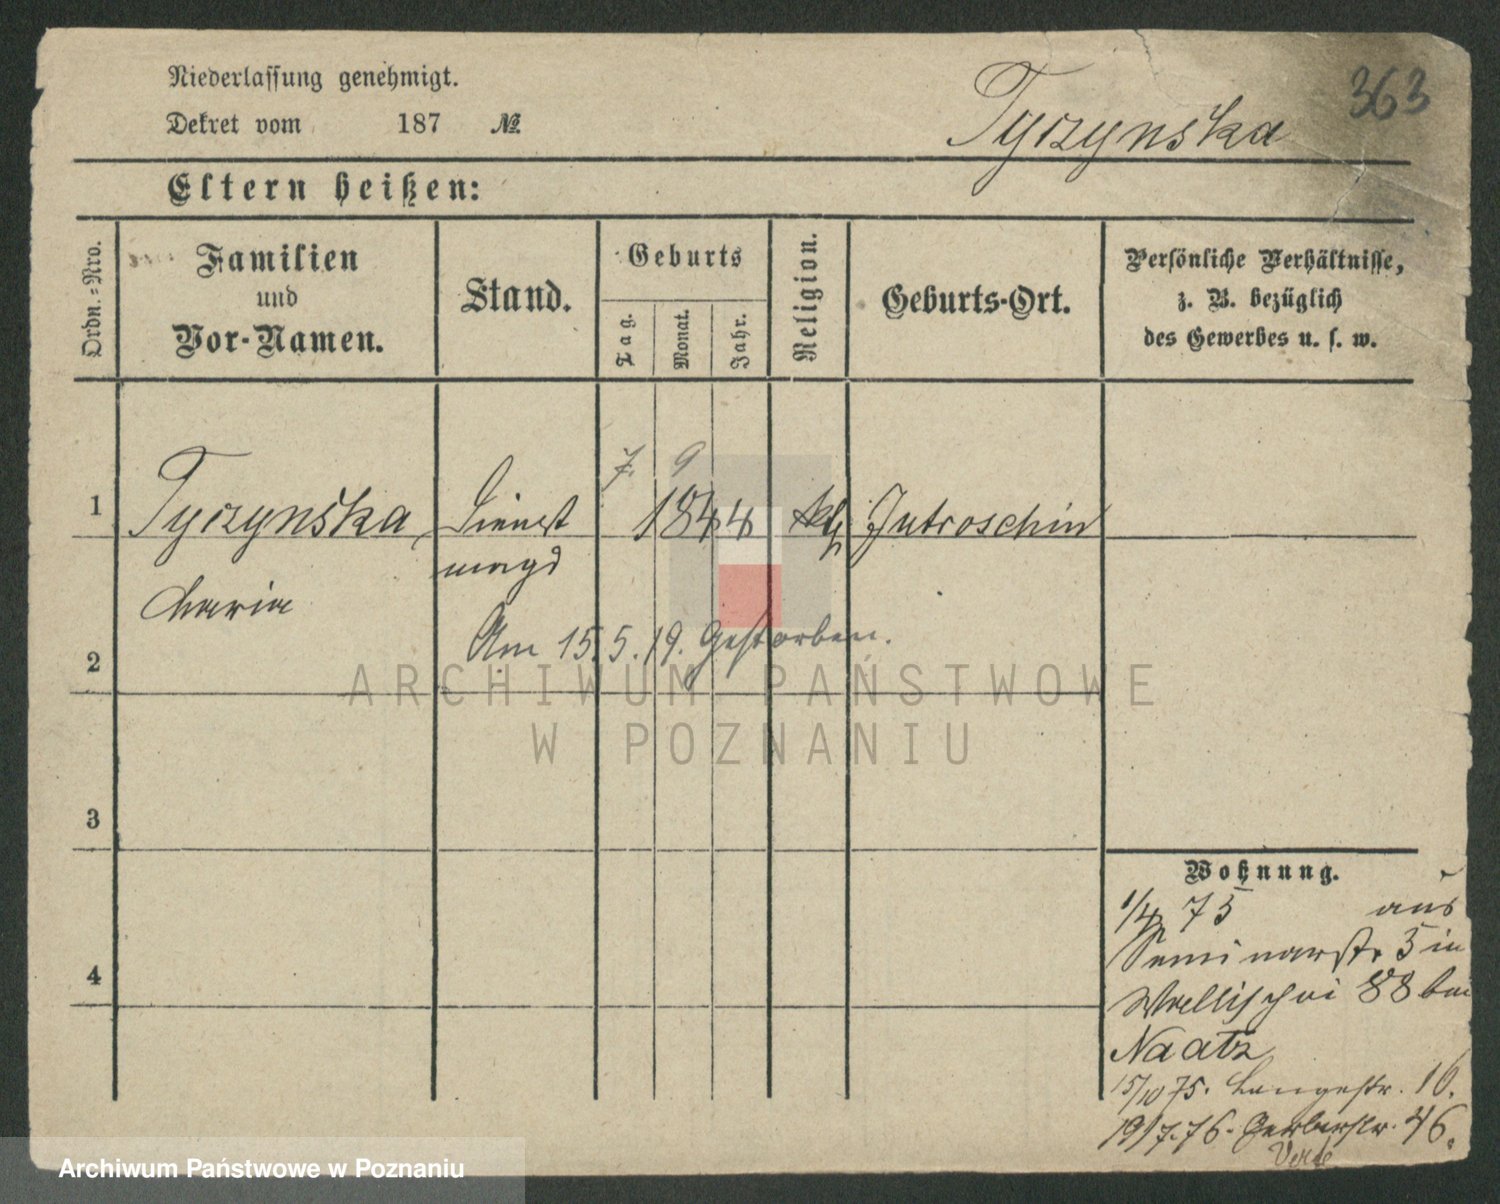 Niederlassung genehmigt.
Dekret vom 187 №
Tyczynska
363
Eltern heißen:
Ordn.-Nro.
Familien
und
Vor-Namen.
Stand.
Geburts
Tag.
Monat.
Jahr.
Religion.
Geburts-Ort.
Persönliche Verhältnisse,
z. B. bezüglich
des Gewerbes u. s. w.
7. 9
1 Tyczynska Dienst 1844 kth Jutroschin
magd
Maria
Am 15.5.19. Gestorben.
2
ARCHIWUM PAŃSTWOWE
W POZNANIU
3
Wohnung.
1/4 75 aus
Seminarstr. 5 in
Wallischei 88 bei
4
Naatz
15/10 75. Langestr. 16.
19/7.76. Gerberstr. 46.
Archiwum Państwowe w Poznaniu